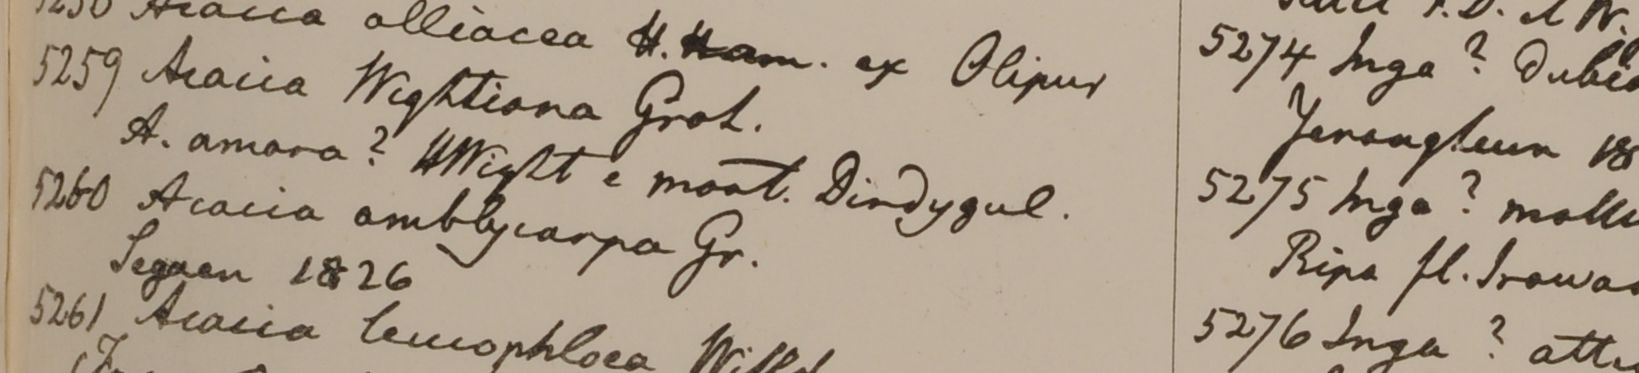 Acacia alliacea H. Ham. ex Olipur
5259 Acacia Wightiana Grah.
A. amara? HWight e mont. Dindygul.
5260 Acacia amblycarpa Gr.
Segaen 1826
5261 Acacia leucophloea Willd
5274 Inga ? dubia
Yenangheun 18
5275 Inga ? molli
Ripa fl. Irawad
5276 Inga ? atte